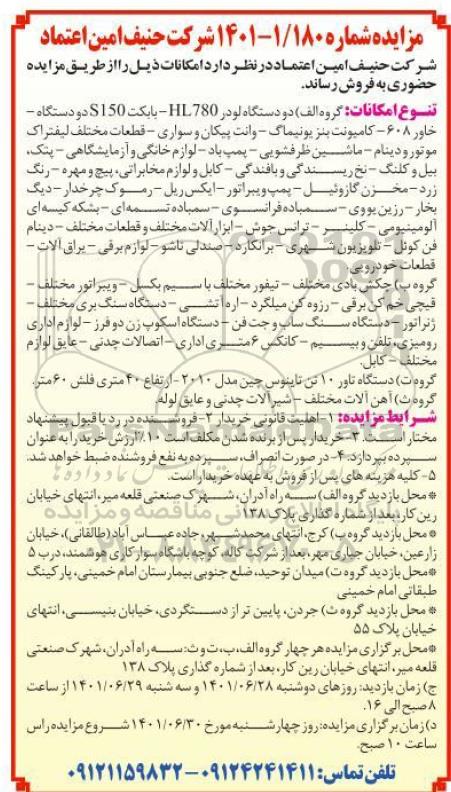 مزایده شماره ۱/۱۸۰-۱۴۰۱ شرکت حنیف امین اعتماد
شرکت حنیف امین اعتماد در نظر دارد امکانات ذیل را از طریق مزایده
حضوری به فروش رساند.
تنوع امکانات: گروه الف) دو دستگاه لودر HL780 - بابکت S150 دو دستگاه -
خاور ۶۰۸ - کامیونت بنز یونیماگ - وانت پیکان و سواری - قطعات مختلف لیفتراک
موتور و دینام - ماشین ظرفشویی - پمپ باد - لوازم خانگی و آزمایشگاهی - پتک،
بیل و کلنگ - نخ ریسندگی و بافندگی - کابل و لوازم مخابراتی، پیچ و مهره - رنگ
زرد - مخزن گازوئیل - پمپ ویبراتور - ایکس ریل - رموک چرخدار - دیگ
بخار - رزین یووی - سمباده فرانسوی - سمباده تسمه‌ای - بشکه کیسه‌ای
آلومینیومی - کلینر - ترانس جوش - ابزارآلات مختلف و قطعات مختلف - دینام
فن کوئل - تلویزیون شهری - برانکارد - صندلی تاشو - لوازم برقی - یراق آلات -
قطعات خودرویی.
گروه ب) چکش بادی مختلف - تیفور مختلف با سیم بکسل - ویبراتور مختلف -
قیچی خم کن برقی - رزوه کن میلگرد - اره آتشی - دستگاه سنگ بری مختلف -
ژنراتور - دستگاه سنگ ساب و جت فن - دستگاه اسکوپ زن دو فرز - لوازم اداری
رومیزی، تلفن و بیسیم - کانکس ۶ متری اداری - اتصالات چدنی - عایق لوازم
مختلف - کابل.
گروه ت) دستگاه تاور ۱۰ تن تاینوس چین مدل ۲۰۱۰ - ارتفاع ۴۰ متری فلش ۶۰ متر.
گروه ث) آهن آلات مختلف - شیرآلات چدنی و عایق لوله.
شرایط مزایده: ۱- اهلیت قانونی خریدار ۲- فروشنده در رد یا قبول پیشنهاد
مختار است. ۳- خریدار پس از برنده شدن مکلف است ۱۰٪ ارزش خرید را به عنوان
سپرده بپردازد. ۴- در صورت انصراف، سپرده به نفع فروشنده ضبط خواهد شد.
۵- کلیه هزینه های پس از فروش به عهده خریدار است.
*محل بازدید گروه الف) سه راه آدران، شهرک صنعتی قلعه میر، انتهای خیابان
رین کار، بعد از شماره گذاری پلاک ۱۳۸
*محل بازدید گروه ب) کرج، انتهای محمدشهر، جاده عباس آباد (طالقانی)، خیابان
زارعین، خیابان جباری مهر، بعد از شرکت کاله، کوچه باشگاه سوارکاری هوشمند، درب ۵
*محل بازدید گروه ت) میدان توحید، ضلع جنوبی بیمارستان امام خمینی، پارکینگ
طبقاتی امام خمینی
*محل بازدید گروه ث) جردن، پایین تر از دستگردی، خیابان بنیسی، انتهای
خیابان پلاک ۵۵
*محل برگزاری مزایده هر چهار گروه الف، ب، ت و ث: سه راه آدران، شهرک صنعتی
قلعه میر، انتهای خیابان رین کار، بعد از شماره گذاری پلاک ۱۳۸
ج) زمان بازدید: روزهای دوشنبه ۱۴۰۱/۰۶/۲۸ و سه شنبه ۱۴۰۱/۰۶/۲۹ از ساعت
۸ صبح الی ۱۶.
د) زمان برگزاری مزایده: روز چهارشنبه مورخ ۱۴۰۱/۰۶/۳۰ شروع مزایده راس
ساعت ۱۰ صبح.
تلفن تماس: ۰۹۱۲۴۲۴۱۴۱۱ - ۰۹۱۲۱۱۵۹۸۳۲